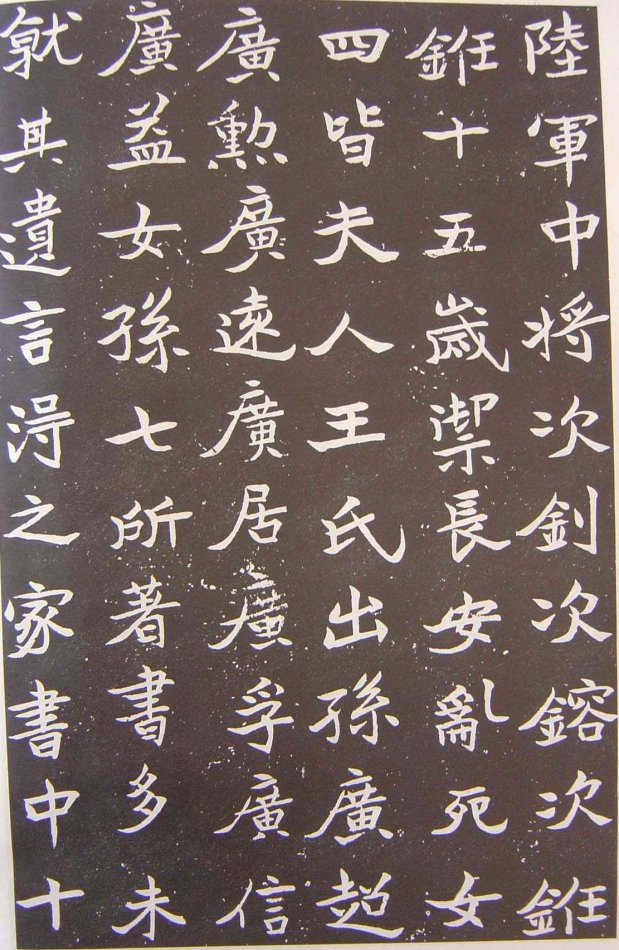 陸軍中将次釗次鎔次銋
銋十五歲禦長安亂死女
四皆夫人王氏出孫廣超
廣勲廣遠廣居廣孚廣信
廣益女孫七所著書多未
就其遺言淂之家書中十